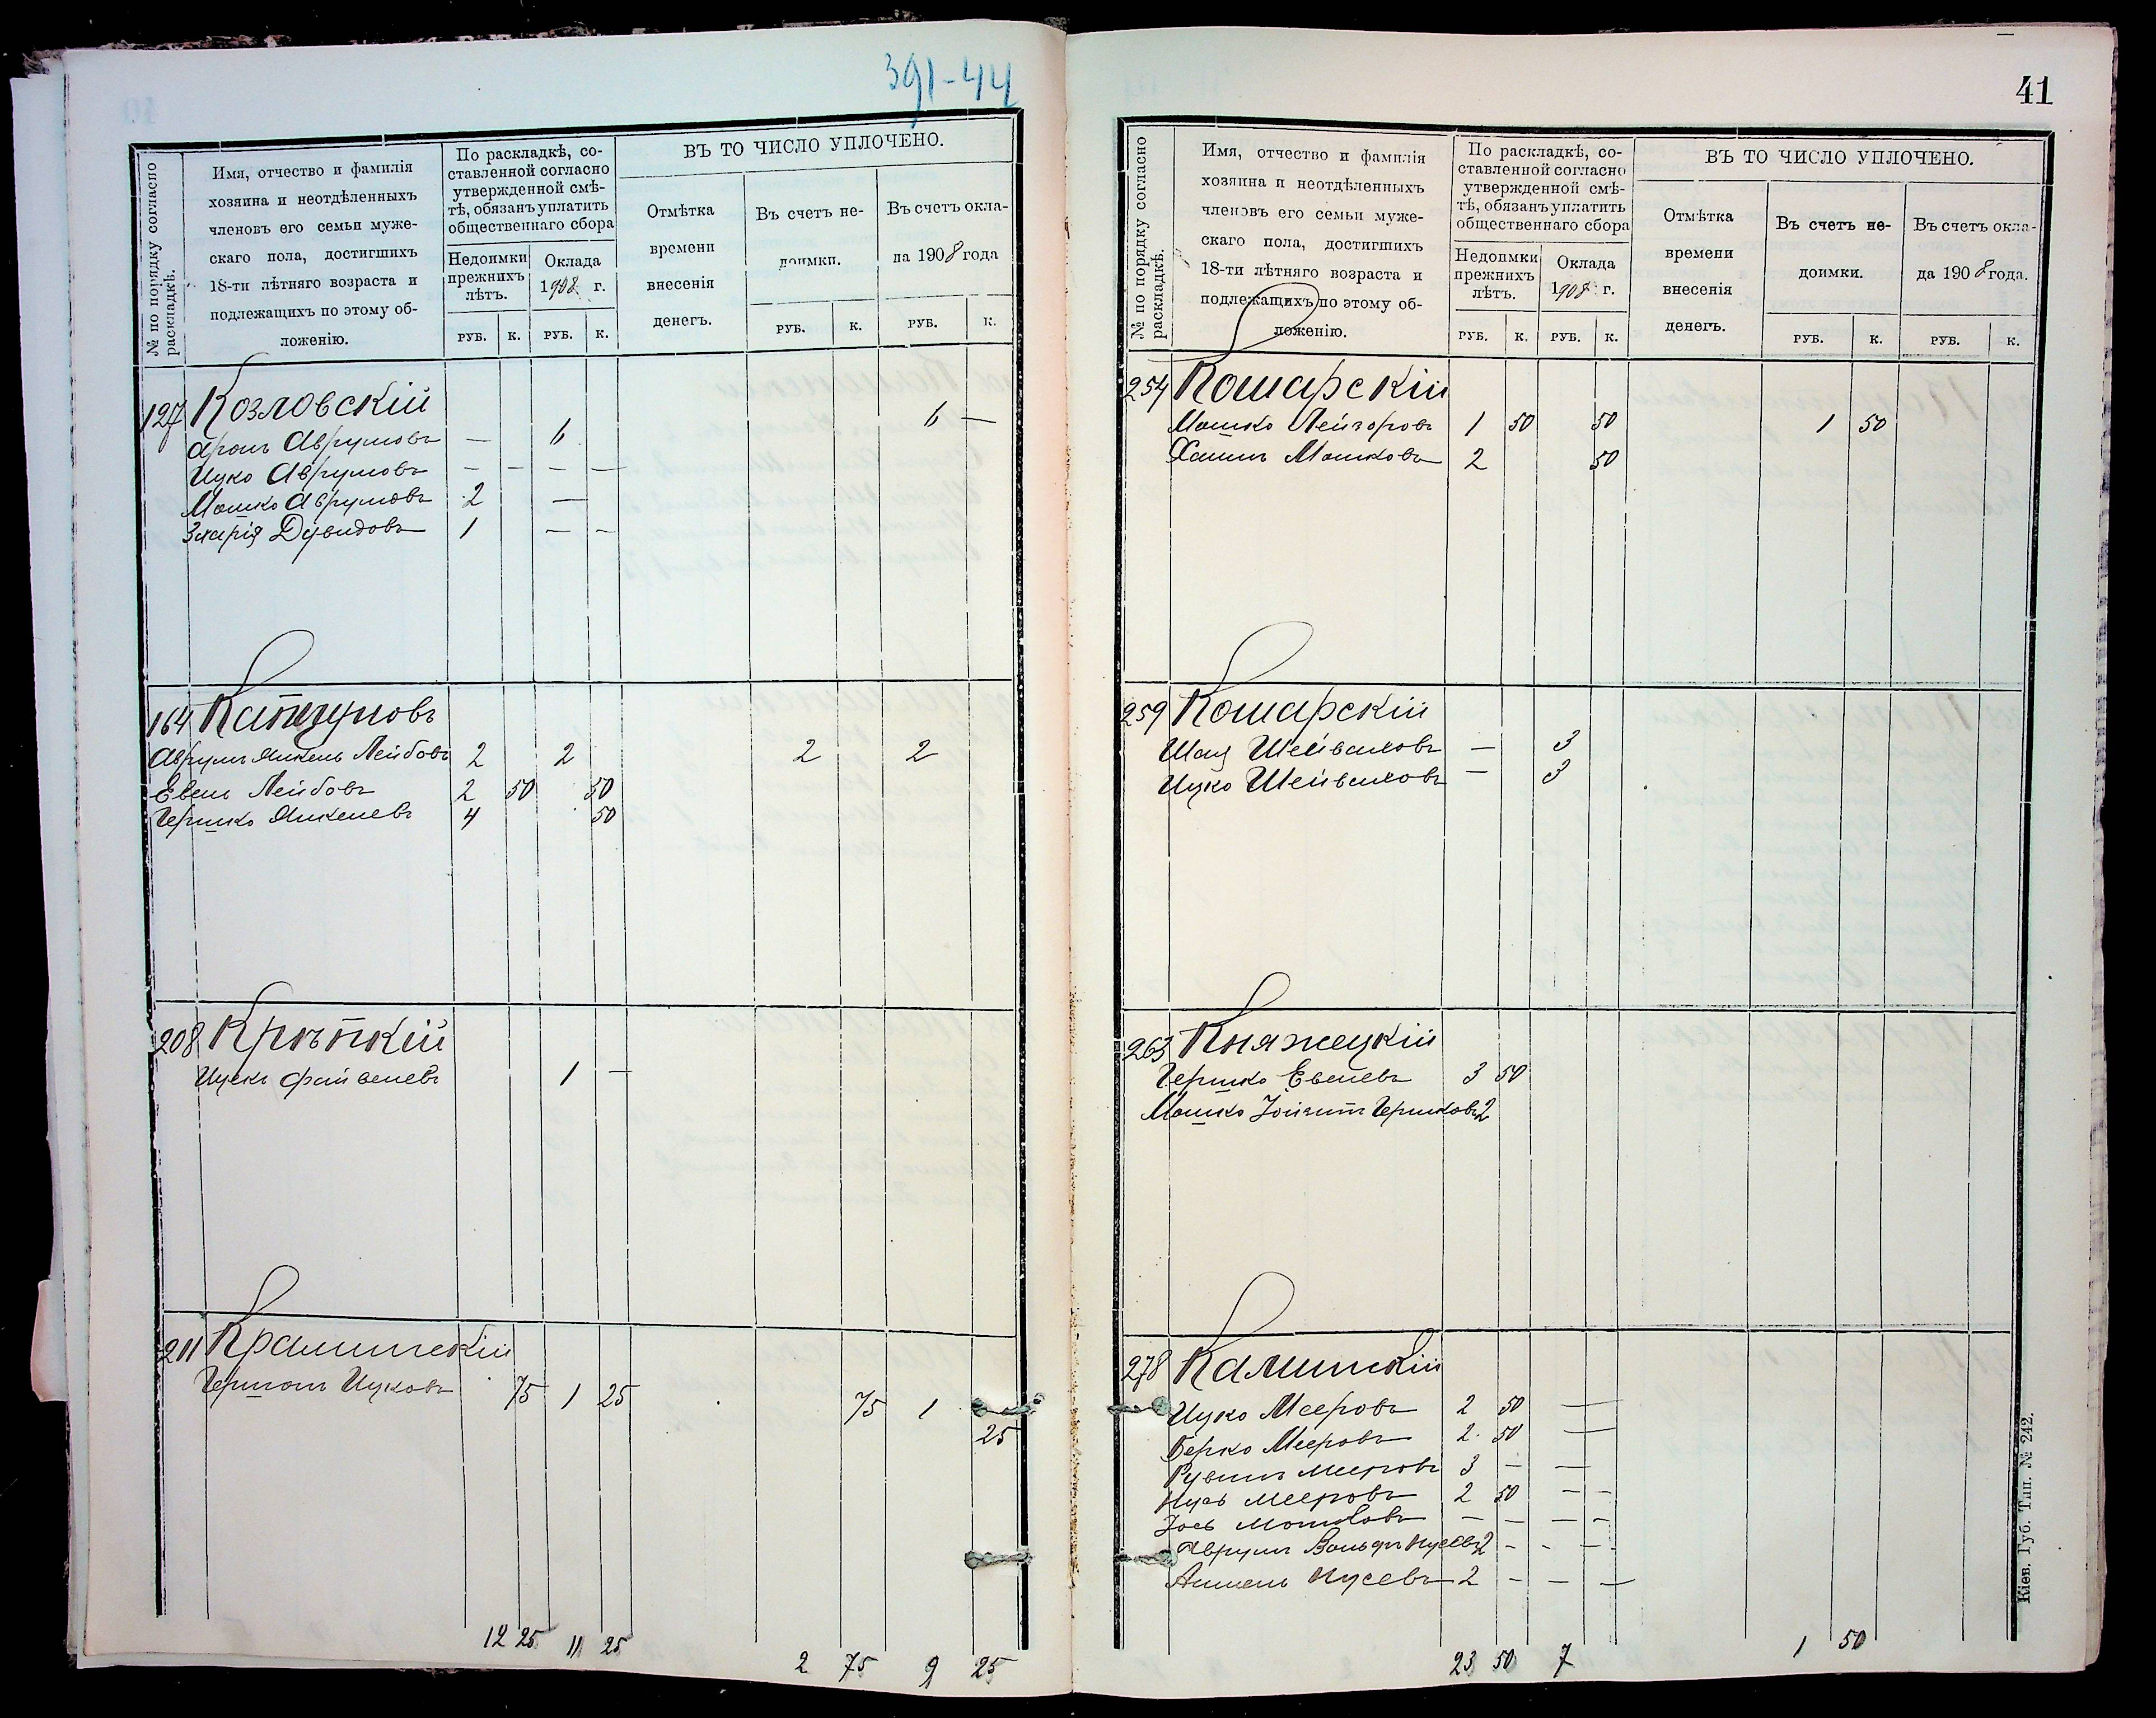 391-44
№ по порядку согласно раскладкѣ.
Имя, отчество и фамилія
хозяина и неотдѣленныхъ
членовъ его семьи муже-
скаго пола, достигшихъ
18-ти лѣтняго возраста и
подлежащихъ по этому об-
ложенію.
По раскладкѣ, со-
ставленной согласно
утвержденной смѣ-
тѣ, обязанъ уплатить
общественнаго сбора
Недоимки
прежнихъ
лѣтъ.
Оклада
1908 г.
РУБ. К. РУБ. К.
ВЪ ТО ЧИСЛО УПЛОЧЕНО.
Отмѣтка
времени
внесенія
денегъ.
Въ счетъ не-
доимки.
Въ счетъ окла-
да 1908 года
РУБ. К. РУБ. К.
127 Козловскій
Аронъ Аврумовъ — 6 6 —
Ицко Аврумовъ — — — —
Мошко Аврумовъ 2 —
Дувидовъ 1 — —
164
Аврумъ Янкель Лейбовъ 2 2 2 2
Евель Лейбовъ 2 50 50
Гершко Янкелевъ 4 50
208 Крѣпкій
Ицекъ Файвелевъ 1 —
211
Ицковъ 75 1 25 75 1 25
12 25 11 25 2 75 9 25
41
№ по порядку согласно раскладкѣ.
Имя, отчество и фамилія
хозяина и неотдѣленныхъ
членовъ его семьи муже-
скаго пола, достигшихъ
18-ти лѣтняго возраста и
подлежащихъ по этому об-
ложенію.
По раскладкѣ, со-
ставленной согласно
утвержденной смѣ-
тѣ, обязанъ уплатить
общественнаго сбора
Недоимки
прежнихъ
лѣтъ.
Оклада
1908 г.
РУБ. К. РУБ. К.
ВЪ ТО ЧИСЛО УПЛОЧЕНО.
Отмѣтка
времени
внесенія
денегъ.
Въ счетъ не-
доимки.
Въ счетъ окла-
да 1908 года.
РУБ. К. РУБ. К.
254 Кошарскій
Мошко Лейзоровъ 1 50 50 1 50
Хаимъ Мошковъ 2 50
259 Кошарскій
Шая — 3
Ицко — 3
263 Княжецкій
Гершко Евелевъ 3 50
Мошко Гершковъ 2
278 Калинскій
Ицко Мееровъ 2 50 —
Берко Мееровъ 2 50 —
Рувинъ Мееровъ 3 — —
Нусь Мееровъ 2 50 — —
Іось Мошковъ — — — —
Аврумъ Вольфъ Нусевъ 2 - - —
Аншель Нусевъ 2 — — —
23 50 7 1 50
Кіев. Губ. Тип. № 242.